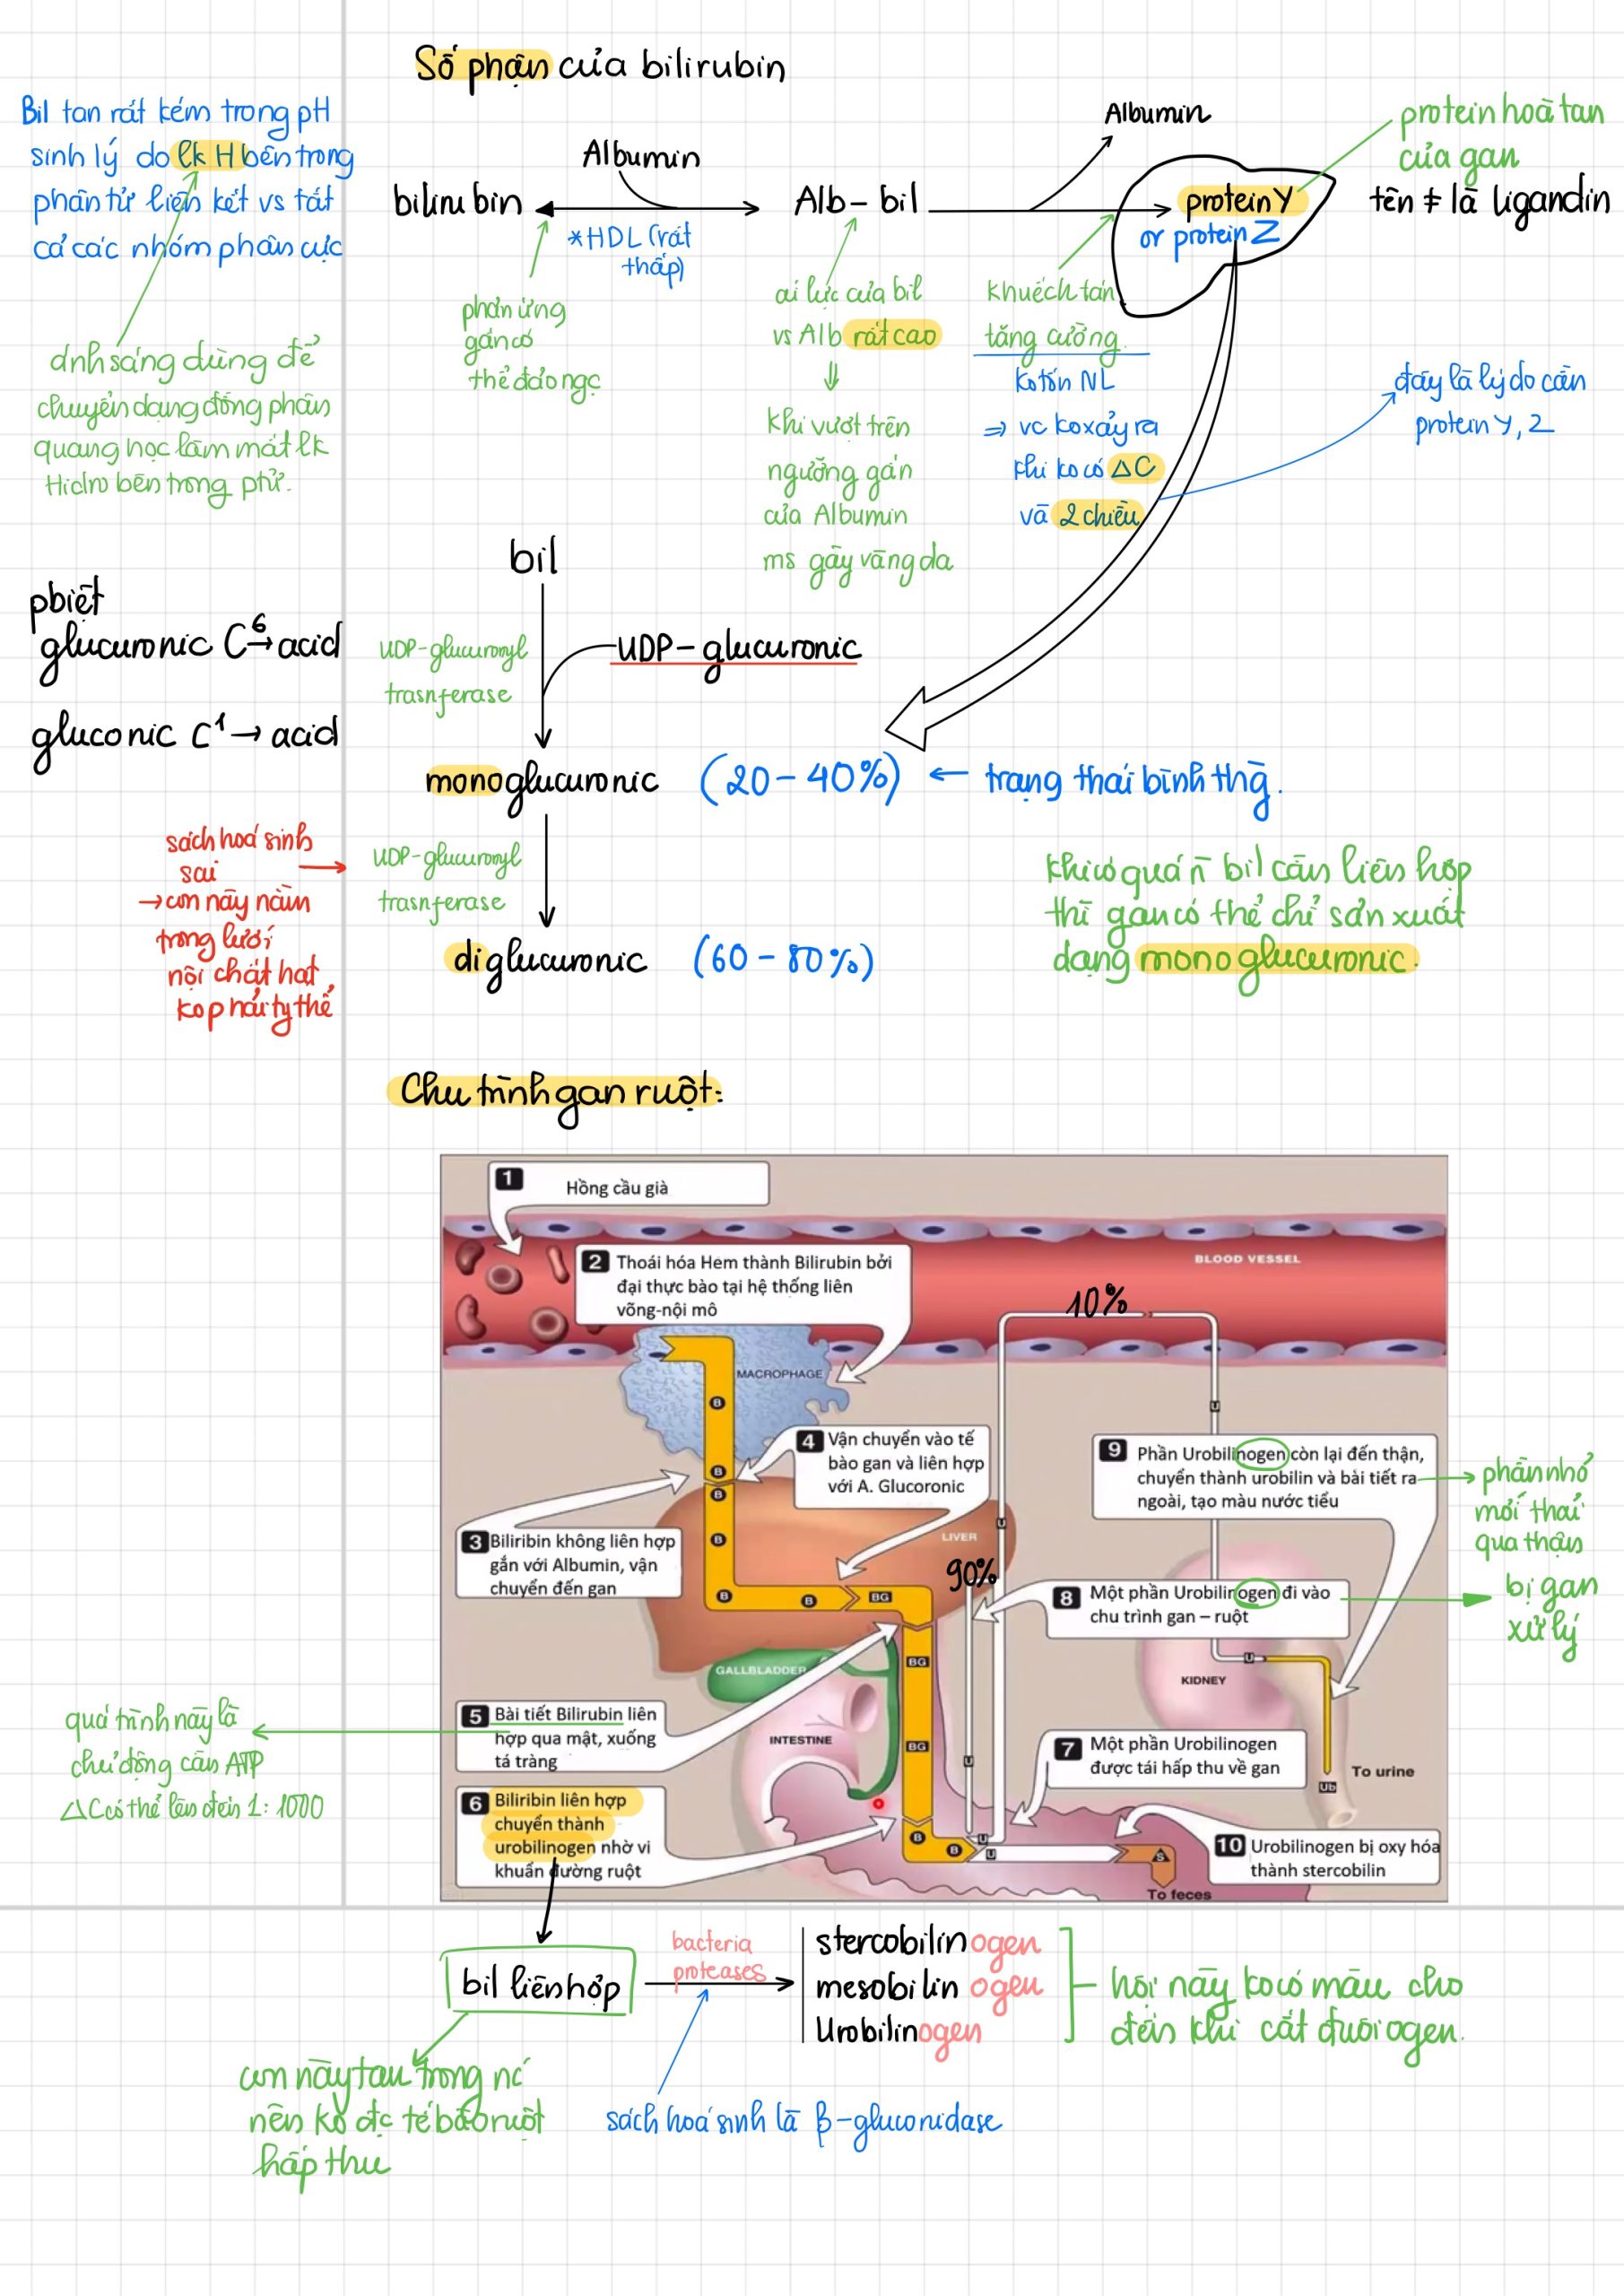 Số phận của bilirubin
Bil tan rất kém trong pH
sinh lý do lk H bên trong
phân tử liên kết vs tất
cả các nhóm phân cực
ánh sáng dùng để
chuyển dạng đồng phân
quang học làm mất lk
Hidro bên trong phtử.
bilirubin
Albumin
*HDL (rất
thấp)
phản ứng
gắn có
thể đảo ngc
Alb-bil
ái lực của bil
vs Alb rất cao
khi vượt trên
ngưỡng gắn
của Albumin
ms gây vàng da
Albumin
khuếch tán
tăng cường
ko tốn NL
⇒ vc ko xảy ra
khi ko có ΔC
và 2 chiều
protein Y
or protein Z
protein hoà tan
của gan
tên ≠ là ligandin
đây là lý do cần
protein Y, Z
pbiệt
glucuronic C⁶→ acid
gluconic C¹ → acid
bil
UDP-glucuronyl
trasnferase
UDP-glucuronic
monoglucuronic (20-40%) ← trạng thái bình thg.
sách hoá sinh
sai
→ con này nằm
trong lưới
nội chất hạt,
ko phải ty thể
UDP-glucuronyl
trasnferase
diglucuronic (60-80%)
khi có quá n̄ bil cần liên hợp
thì gan có thể chỉ sản xuất
dạng monoglucuronic.
Chu trình gan ruột:
1 Hồng cầu già
BLOOD VESSEL
2 Thoái hóa Hem thành Bilirubin bởi
đại thực bào tại hệ thống liên
võng-nội mô
10%
MACROPHAGE
B
U
4 Vận chuyển vào tế
bào gan và liên hợp
với A. Glucoronic
9 Phần Urobilinogen còn lại đến thận,
chuyển thành urobilin và bài tiết ra
ngoài, tạo màu nước tiểu
phần nhỏ
mới thải
qua thận
B
B
3 Biliribin không liên hợp
gắn với Albumin, vận
chuyển đến gan
B
LIVER
U
90%
B
B
BG
8 Một phần Urobilinogen đi vào
chu trình gan – ruột
bị gan
xử lý
BG
GALLBLADDER
U
KIDNEY
5 Bài tiết Bilirubin liên
hợp qua mật, xuống
tá tràng
quá trình này là
chủ động cần ATP
ΔC có thể lên đến 1:1000
INTESTINE
BG
U
7 Một phần Urobilinogen
được tái hấp thu về gan
To urine
Ub
6 Biliribin liên hợp
chuyển thành
urobilinogen nhờ vi
khuẩn đường ruột
B
B
U
U
S
10 Urobilinogen bị oxy hóa
thành stercobilin
To feces
bil liên hợp
bacteria
proteases
stercobilinogen
mesobilinogen
Urobilinogen
hội này ko có màu cho
đến khi cắt đuôi ogen.
con này tan trong nc
nên ko đc tế bào ruột
hấp thu
sách hoá sinh là β-gluconidase